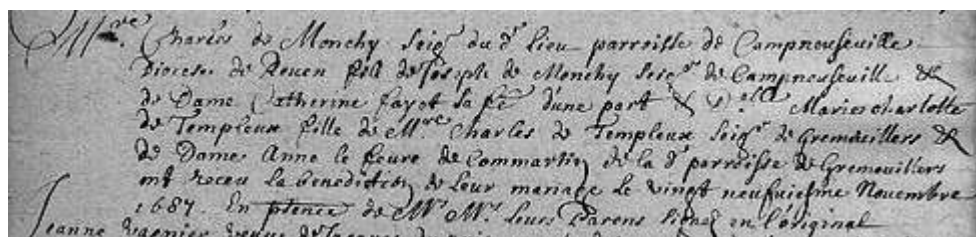 Mre. Charles de Monchy Seigr. du d. lieu parroisse de Campneuseville
Diocese de Rouen fil de Joseph de Monchy Seigr. de Campneuseville &
de Dame Catherine fayot sa fe. d'une part & Dlle. Marie charlotte
de Templeux fille de Mre. Charles de Templeux Seigr. de Gremevillers &
de Dame Anne le feure de Commartin de la d. parroisse de Gremevillers
ont receu la benediction de leur mariage le vingt neufuiesme Novembre
1687. En pñence de Mrs. Mrs. leurs Parens signez en l'original
Jeanne vaenier veuve de Jacques